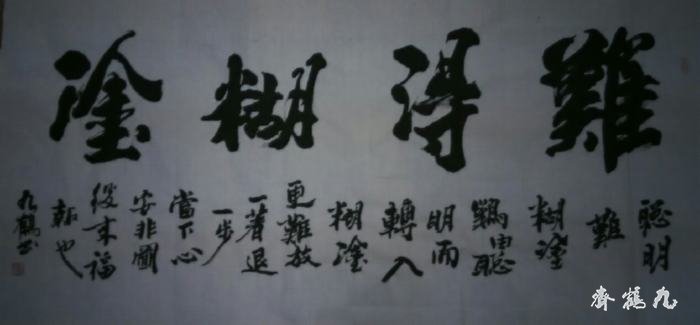 難得糊塗
聰明
難
糊塗
難由聰
明而
轉入
糊塗
更難放
一著退
一步
當下心
安非圖
後來福
報也
九鶴書
九鶴齊